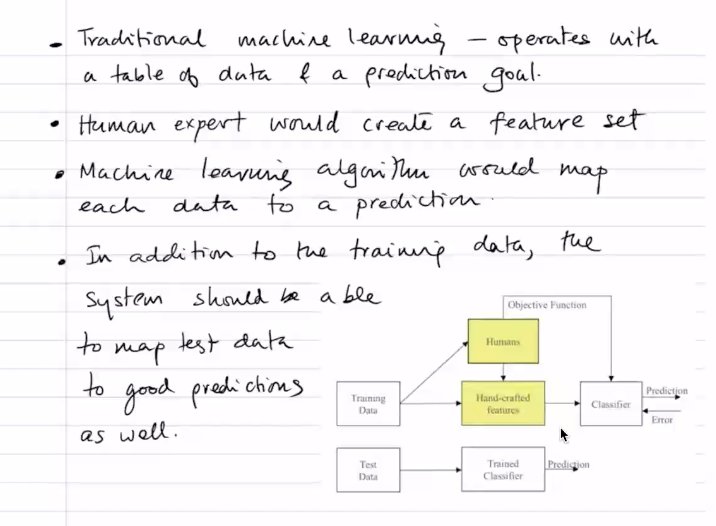 - Traditional machine learning - operates with
a table of data & a prediction goal.
• Human expert would create a feature set
• Machine learning algorithm would map
each data to a prediction.
• In addition to the training data, the
system should be able
to map test data
to good predictions
as well.
Objective Function
Humans
Training
Data
Hand-crafted
features
Classifier
Prediction
Error
Test
Data
Trained
Classifier
Prediction